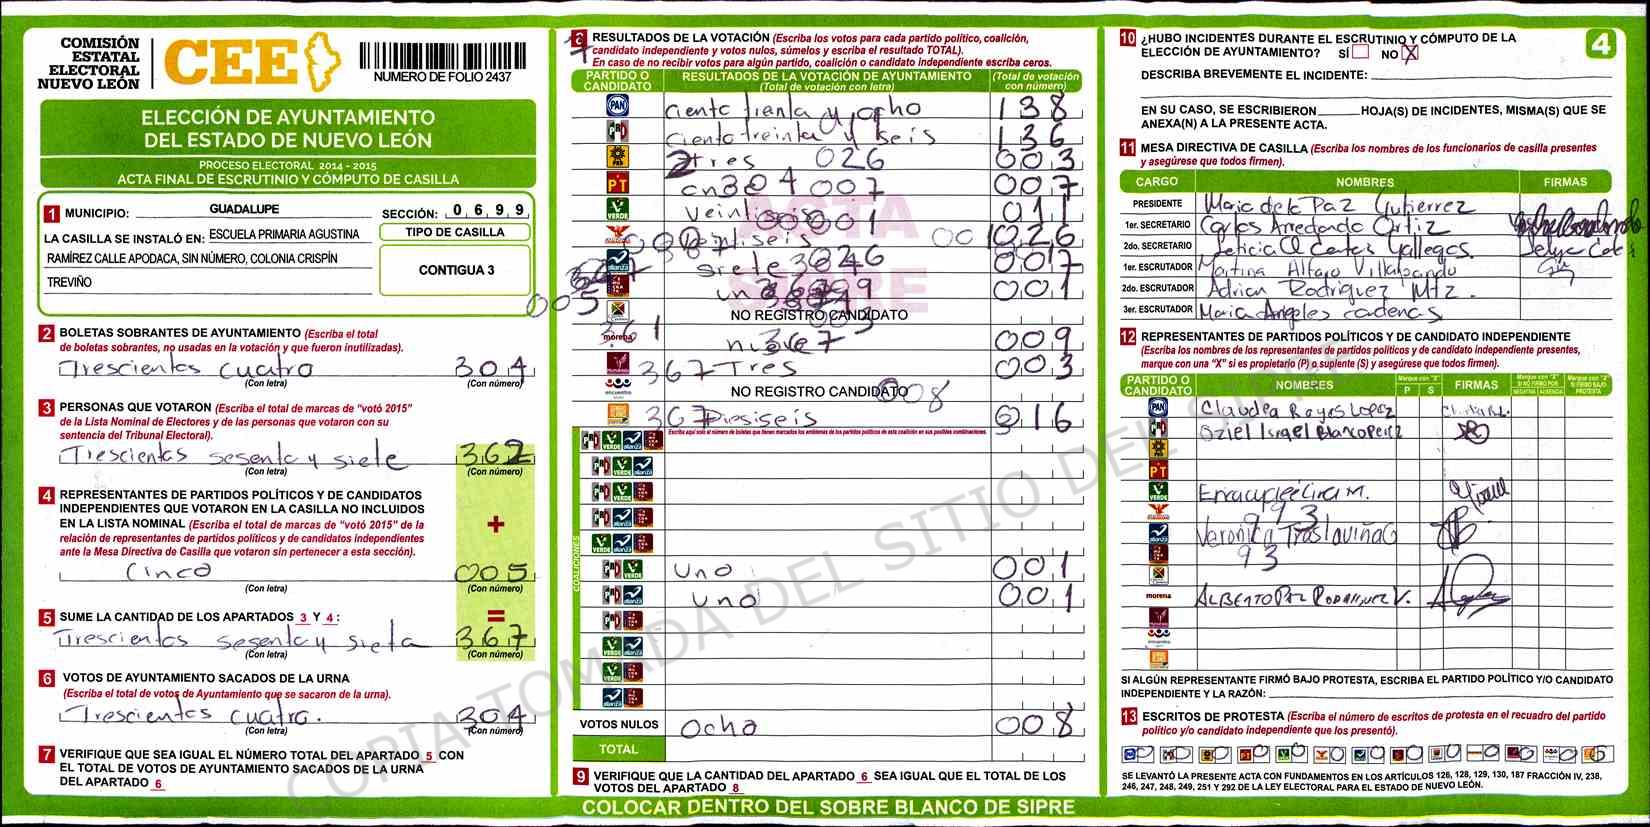 COMISIÓN
ESTATAL
ELECTORAL
NUEVO LEÓN
CEE
NUMERO DE FOLIO 2437
ELECCIÓN DE AYUNTAMIENTO
DEL ESTADO DE NUEVO LEÓN
PROCESO ELECTORAL 2014 - 2015
ACTA FINAL DE ESCRUTINIO Y CÓMPUTO DE CASILLA
1 MUNICIPIO: GUADALUPE SECCIÓN: 0 6 9 9
LA CASILLA SE INSTALÓ EN: ESCUELA PRIMARIA AGUSTINA
RAMÍREZ CALLE APODACA, SIN NÚMERO, COLONIA CRISPÍN
TREVIÑO
TIPO DE CASILLA
CONTIGUA 3
2 BOLETAS SOBRANTES DE AYUNTAMIENTO (Escriba el total
de boletas sobrantes, no usadas en la votación y que fueron inutilizadas).
Trescientos cuatro 304
(Con letra) (Con número)
3 PERSONAS QUE VOTARON (Escriba el total de marcas de “votó 2015”
de la Lista Nominal de Electores y de las personas que votaron con su
sentencia del Tribunal Electoral).
Trescientos sesenta y siete 362
(Con letra) (Con número)
4 REPRESENTANTES DE PARTIDOS POLÍTICOS Y DE CANDIDATOS
INDEPENDIENTES QUE VOTARON EN LA CASILLA NO INCLUIDOS
EN LA LISTA NOMINAL (Escriba el total de marcas de “votó 2015” de la
relación de representantes de partidos políticos y de candidatos independientes
ante la Mesa Directiva de Casilla que votaron sin pertenecer a esta sección).
+
Cinco 005
(Con letra) (Con número)
5 SUME LA CANTIDAD DE LOS APARTADOS 3 Y 4 : =
Trescientos sesenta y siete 367
(Con letra) (Con número)
6 VOTOS DE AYUNTAMIENTO SACADOS DE LA URNA
(Escriba el total de votos de Ayuntamiento que se sacaron de la urna).
Trescientos cuatro. 304
(Con letra) (Con número)
7 VERIFIQUE QUE SEA IGUAL EL NÚMERO TOTAL DEL APARTADO 5 CON
EL TOTAL DE VOTOS DE AYUNTAMIENTO SACADOS DE LA URNA
DEL APARTADO 6
RESULTADOS DE LA VOTACIÓN (Escriba los votos para cada partido político, coalición,
candidato independiente y votos nulos, súmelos y escriba el resultado TOTAL).
En caso de no recibir votos para algún partido, coalición o candidato independiente escriba ceros.
PARTIDO O CANDIDATO RESULTADOS DE LA VOTACIÓN DE AYUNTAMIENTO (Total de votación con letra) (Total de votación con número)
PAN ciento treinta y ocho 138
PRI ciento treinta y seis 136
PRD tres 026 003
PT 304 007 007
VERDE 001 011
026
alianza siete 007
005 001
NO REGISTRO CANDIDATO
morena 361 009
367 Tres 003
NO REGISTRO CANDIDATO 008
367 Diesiseis 016
Escriba aquí solo el número de boletas que tienen marcados los emblemas de los partidos políticos de esta coalición en sus posibles combinaciones.
COALICIONES
PRI VERDE alianza
PRI VERDE alianza
PRI VERDE
PRI alianza
VERDE alianza
PRI VERDE Uno 001
PRI alianza Uno 001
PRI
VERDE alianza
VERDE
alianza
VOTOS NULOS Ocho 008
TOTAL
9 VERIFIQUE QUE LA CANTIDAD DEL APARTADO 6 SEA IGUAL QUE EL TOTAL DE LOS
VOTOS DEL APARTADO 8
ACTA
SIPRE
COPIA TOMADA DEL SITIO DEL SIPRE
COLOCAR DENTRO DEL SOBRE BLANCO DE SIPRE
10 ¿HUBO INCIDENTES DURANTE EL ESCRUTINIO Y CÓMPUTO DE LA
ELECCIÓN DE AYUNTAMIENTO? SÍ NO X
4
DESCRIBA BREVEMENTE EL INCIDENTE:
EN SU CASO, SE ESCRIBIERON HOJA(S) DE INCIDENTES, MISMA(S) QUE SE
ANEXA(N) A LA PRESENTE ACTA.
11 MESA DIRECTIVA DE CASILLA (Escriba los nombres de los funcionarios de casilla presentes
y asegúrese que todos firmen).
CARGO NOMBRES FIRMAS
PRESIDENTE Maria de la Paz Gutierrez
1er. SECRETARIO Carlos Arredondo Ortiz
2do. SECRETARIO Leticia Gallegos
1er. ESCRUTADOR Martina Alfaro Villalpando
2do. ESCRUTADOR Adrian Rodriguez Mtz.
3er. ESCRUTADOR Maria Angeles cadenas
12 REPRESENTANTES DE PARTIDOS POLÍTICOS Y DE CANDIDATO INDEPENDIENTE
(Escriba los nombres de los representantes de partidos políticos y de candidato independiente presentes,
marque con una “X” si es propietario (P) o suplente (S) y asegúrese que todos firmen).
PARTIDO O CANDIDATO NOMBRES P S FIRMAS
PAN Claudia Reyes Lopez
PRI Oziel Israel Blanco Perez
PRD
PT
VERDE
993
alianza Veronica Traslaviña G
93
morena ALBERTO PAZ RODRIGUEZ V.
SI ALGÚN REPRESENTANTE FIRMÓ BAJO PROTESTA, ESCRIBA EL PARTIDO POLÍTICO Y/O CANDIDATO
INDEPENDIENTE Y LA RAZÓN:
13 ESCRITOS DE PROTESTA (Escriba el número de escritos de protesta en el recuadro del partido
político y/o candidato independiente que los presentó).
SE LEVANTÓ LA PRESENTE ACTA CON FUNDAMENTOS EN LOS ARTÍCULOS 126, 128, 129, 130, 187 FRACCIÓN IV, 238,
246, 247, 248, 249, 251 Y 292 DE LA LEY ELECTORAL PARA EL ESTADO DE NUEVO LEÓN.